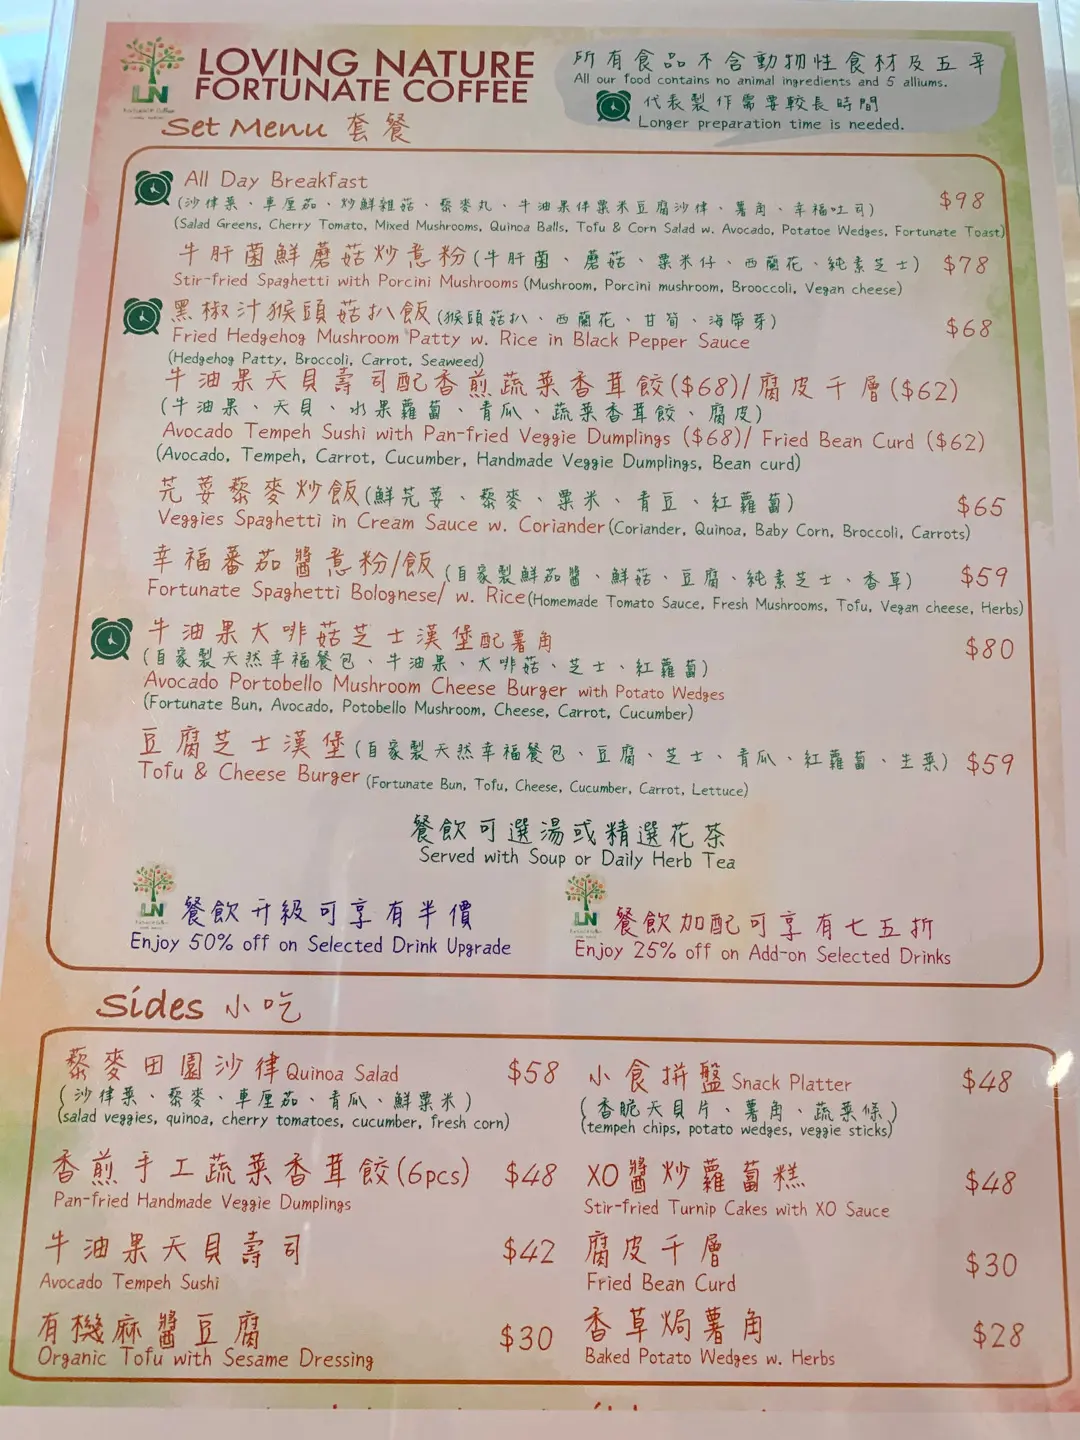 LOVING NATURE
FORTUNATE COFFEE
LN
所有食品不含動物性食材及五辛
All our food contains no animal ingredients and 5 alliums.
代表製作需要較長時間
Longer preparation time is needed.
Set Menu 套餐
All Day Breakfast $98
(沙律菜、車厘茄、炒鮮雜菇、藜麥丸、牛油果伴粟米豆腐沙律、薯角、幸福吐司)
(Salad Greens, Cherry Tomato, Mixed Mushrooms, Quinoa Balls, Tofu & Corn Salad w. Avocado, Potatoe Wedges, Fortunate Toast)
牛肝菌鮮蘑菇炒意粉(牛肝菌、蘑菇、粟米仔、西蘭花、純素芝士) $78
Stir-fried Spaghetti with Porcini Mushrooms (Mushroom, Porcini mushroom, Brooccoli, Vegan cheese)
黑椒汁猴頭菇扒飯(猴頭菇扒、西蘭花、甘筍、海帶芽) $68
Fried Hedgehog Mushroom Patty w. Rice in Black Pepper Sauce
(Hedgehog Patty, Broccoli, Carrot, Seaweed)
牛油果天貝壽司配香煎蔬菜香茸餃($68)/腐皮千層($62)
(牛油果、天貝、水果蘿蔔、青瓜、蔬菜香茸餃、腐皮)
Avocado Tempeh Sushi with Pan-fried Veggie Dumplings ($68)/ Fried Bean Curd ($62)
(Avocado, Tempeh, Carrot, Cucumber, Handmade Veggie Dumplings, Bean curd)
芫荽藜麥炒飯(鮮芫荽、藜麥、粟米、青豆、紅蘿蔔) $65
Veggies Spaghetti in Cream Sauce w. Coriander (Coriander, Quinoa, Baby Corn, Broccoli, Carrots)
幸福蕃茄醬意粉/飯(自家製鮮茄醬、鮮菇、豆腐、純素芝士、香草) $59
Fortunate Spaghetti Bolognese/ w. Rice (Homemade Tomato Sauce, Fresh Mushrooms, Tofu, Vegan cheese, Herbs)
牛油果大啡菇芝士漢堡配薯角 $80
(自家製天然幸福餐包、牛油果、大啡菇、芝士、紅蘿蔔)
Avocado Portobello Mushroom Cheese Burger with Potato Wedges
(Fortunate Bun, Avocado, Potobello Mushroom, Cheese, Carrot, Cucumber)
豆腐芝士漢堡(自家製天然幸福餐包、豆腐、芝士、青瓜、紅蘿蔔、生菜) $59
Tofu & Cheese Burger (Fortunate Bun, Tofu, Cheese, Cucumber, Carrot, Lettuce)
餐飲可選湯或精選花茶
Served with Soup or Daily Herb Tea
LN
餐飲升級可享有半價
Enjoy 50% off on Selected Drink Upgrade
LN
餐飲加配可享有七五折
Enjoy 25% off on Add-on Selected Drinks
Sides 小吃
藜麥田園沙律 Quinoa Salad $58
(沙律菜、藜麥、車厘茄、青瓜、鮮粟米)
(salad veggies, quinoa, cherry tomatoes, cucumber, fresh corn)
小食拼盤 Snack Platter $48
(香脆天貝片、薯角、蔬菜條)
(tempeh chips, potato wedges, veggie sticks)
香煎手工蔬菜香茸餃(6pcs) $48
Pan-fried Handmade Veggie Dumplings
XO醬炒蘿蔔糕 $48
Stir-fried Turnip Cakes with XO Sauce
牛油果天貝壽司 $42
Avocado Tempeh Sushi
腐皮千層 $30
Fried Bean Curd
有機麻醬豆腐 $30
Organic Tofu with Sesame Dressing
香草焗薯角 $28
Baked Potato Wedges w. Herbs